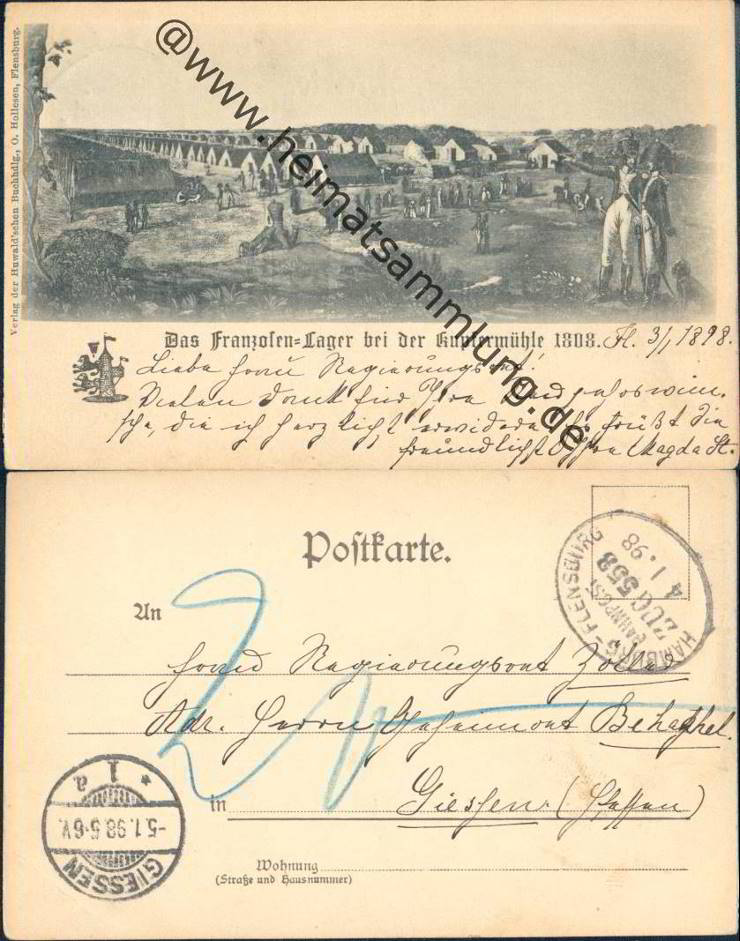 Verlag der Huwald'schen Buchhdlg., O. Hollesen, Flensburg.
@www.heimatsammlung.de
Das Franzosen=Lager bei der Kupfermühle 1808. Fl. 3/1 1898.
Liebe Frau Regierungsrat!
Vielen Dank für Ihre Neujahrswün-
sche, die ich herzlichst erwidere. Es grüßt Sie
freundlichst Ihre Magda St.
Postkarte.
HAMBURG-FLENSBURG
BAHNPOST
ZUG 553
4 1.98
An
Frau Regierungsrat
Adr. Herrn Geheimrat Behaghel.
in Giessen (Hessen)
GIESSEN
-5.1.98.5-6V.
* 1 a
Wohnung
(Straße und Hausnummer)